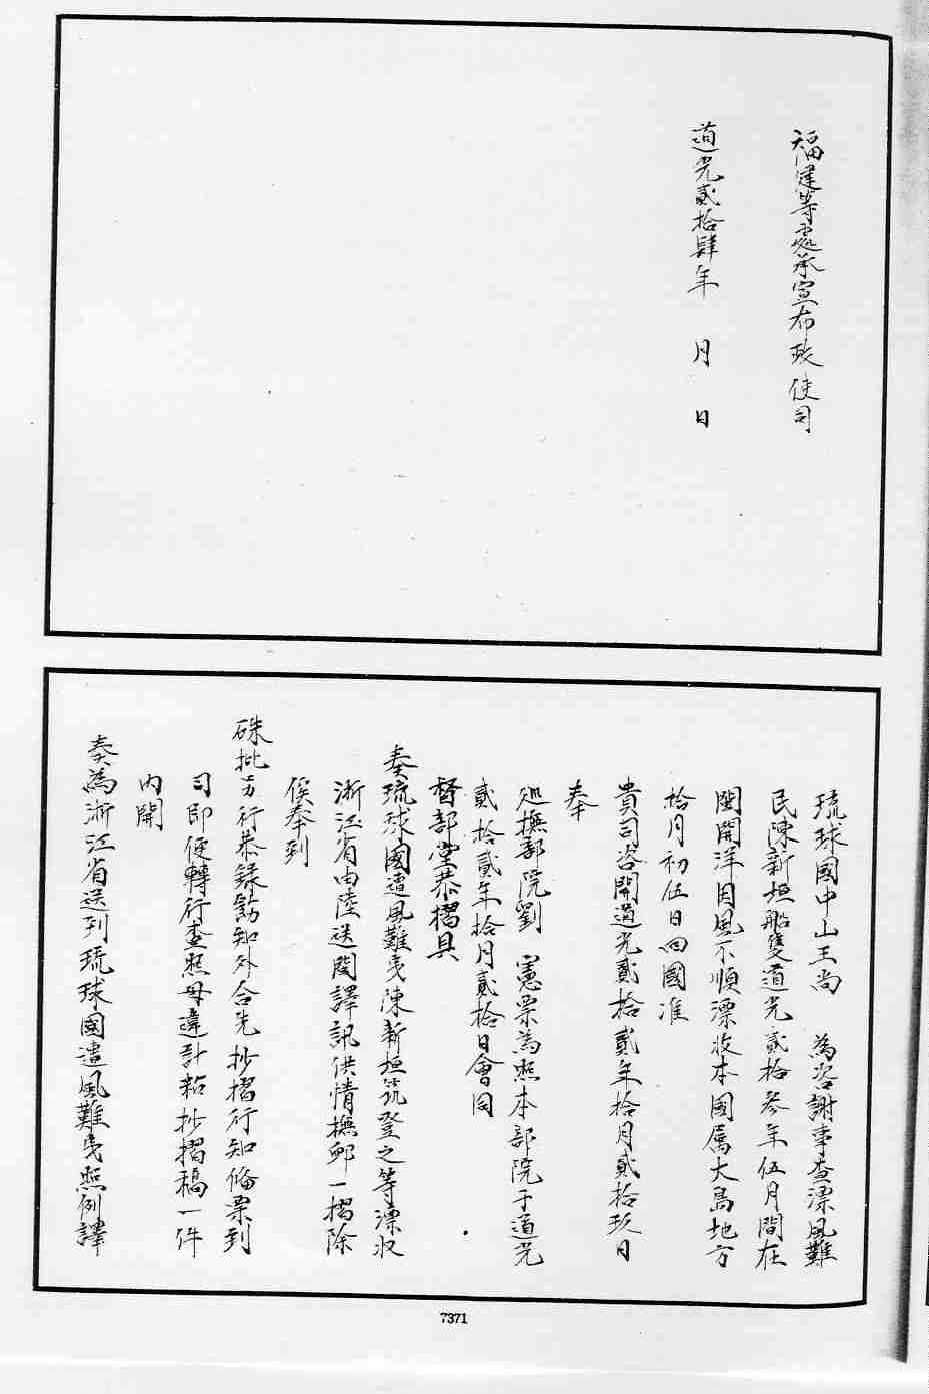 福建等處承宣布政使司
道光貳拾肆年　月　日
琉球國中山王尚　為咨謝事查漂風難
民陳新垣船隻道光貳拾參年伍月間在
閩開洋因風不順漂收本國属大島地方
拾月初伍日回國准
貴司咨開道光貳拾貳年拾月貳拾玖日
奉
巡撫部院劉　憲票為照本部院于道光
貳拾貳年拾月貳拾日會同
督部堂恭摺具
奏琉球國遭風難夷陳新垣筑登之等漂收
浙江省由陸送閩譯訊供情撫郵一摺除
俟奉到
硃批另行恭錄飭知外合先抄摺行知俻票到
司即便轉行查照毋違計粘抄摺稿一件
內開
奏為浙江省送到琉球國遭風難夷照例譯
7371